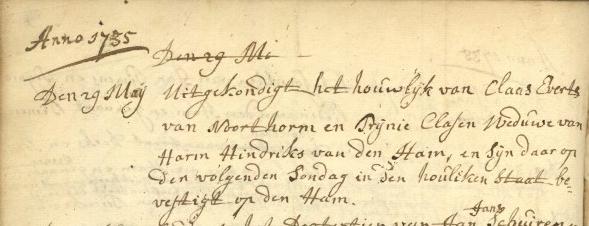 Anno 1735
Den 29 Mi
Den 29 Maÿ Uitgekondigt het houwlÿk van Claas Everts
van Noorthorm en Trÿnie Clasen Weduwe van
Harm Hindriks van den Ham, en sÿn daar op
den volgenden Sondag in den houliken staat be-
vestigt op den Ham.
Jans
van Jan Schuiren